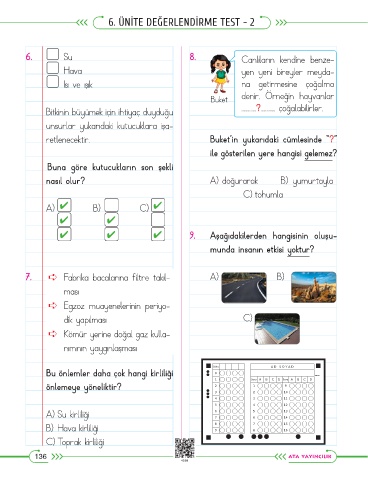 6. ÜNİTE DEĞERLENDİRME TEST - 2
6. Su
Hava
Isı ve ışık
Bitkinin büyümek için ihtiyaç duyduğu
unsurlar yukarıdaki kutucuklara işa-
retlenecektir.
Buna göre kutucukların son şekli
nasıl olur?
A) B) C)
7. Fabrika bacalarına filtre takıl-
ması
Egzoz muayenelerinin periyo-
dik yapılması
Kömür yerine doğal gaz kulla-
nımının yaygınlaşması
Bu önlemler daha çok hangi kirliliği
önlemeye yöneliktir?
A) Su kirliliği
B) Hava kirliliği
C) Toprak kirliliği
8. Canlıların kendine benze-
yen yeni bireyler meyda-
na getirmesine çoğalma
denir. Örneğin hayvanlar
........?........ çoğalabilirler.
Buket
Buket'in yukarıdaki cümlesinde "?"
ile gösterilen yere hangisi gelemez?
A) doğurarak B) yumurtayla
C) tohumla
9. Aşağıdakilerden hangisinin oluşu-
munda insanın etkisi yoktur?
A) B)
C)
AD SOYAD
136
ATA YAYINCILIK